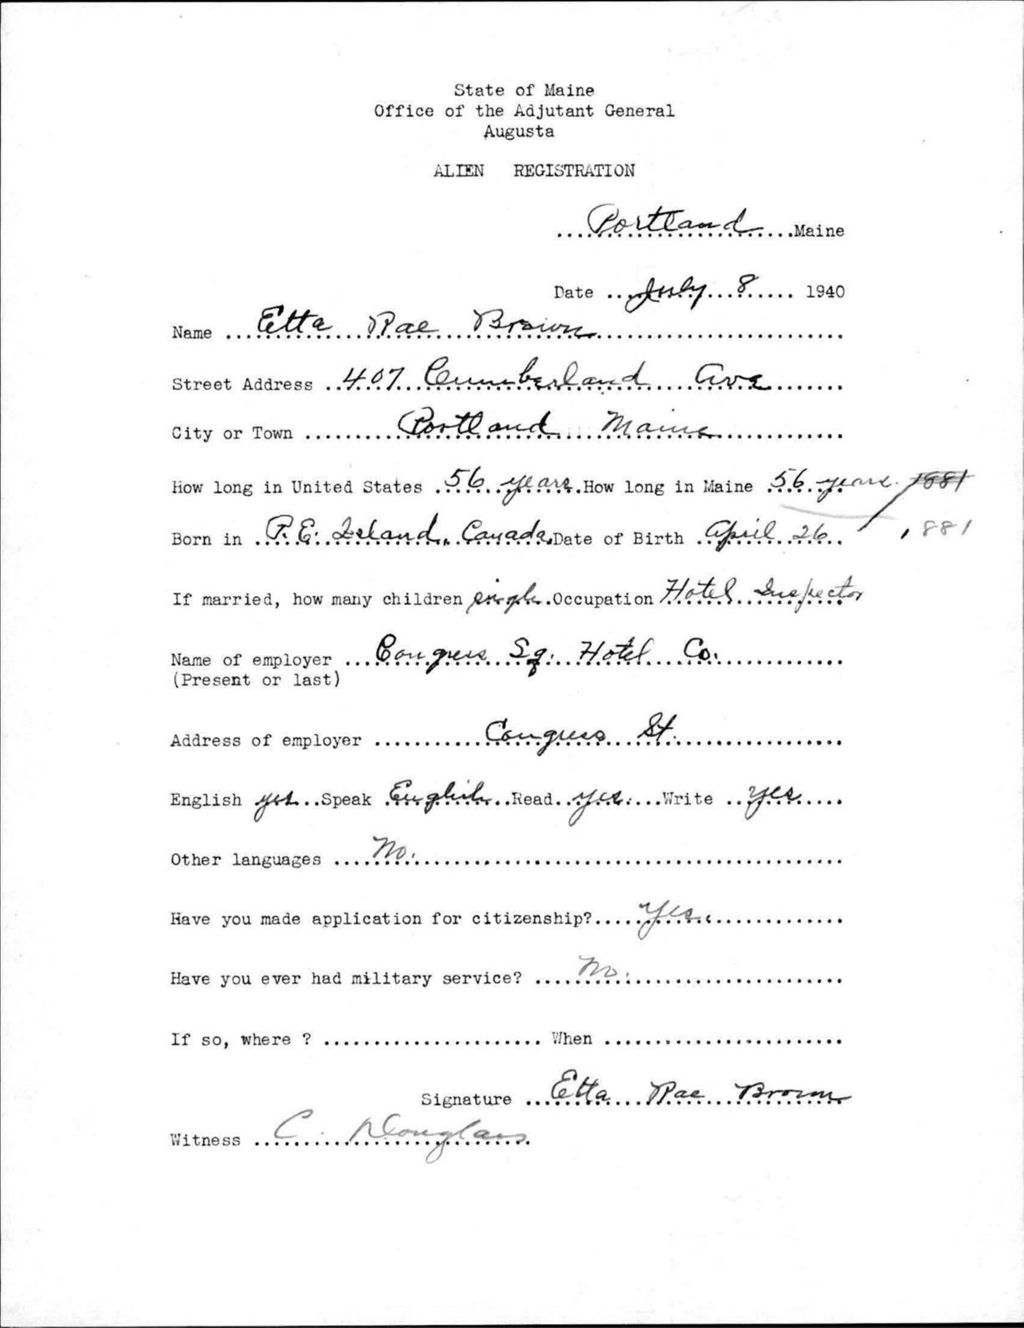 State of Maine
Office of the Adjutant General
Augusta
ALIEN REGISTRATION
...Portland...Maine
Date ...July 8...1940
Name ...Etta Rae Brown...
Street Address ..407 Cumberland Ave...
City or Town ...Portland Maine...
How long in United States .56 years.How long in Maine .56 years. 1881
Born in .P.E. Island, Canada.Date of Birth .April 26.. 1881
If married, how many children single.Occupation Hotel Inspector
Name of employer ...Congress Sq. Hotel Co...
(Present or last)
Address of employer ...Congress St...
English yes...Speak .English..Read..yes....Write ..yes....
Other languages ....No....
Have you made application for citizenship?....Yes....
Have you ever had military service? ....No....
If so, where ? ...................... When ........................
Signature ...Etta Rae Brown
Witness ..C. Douglass.